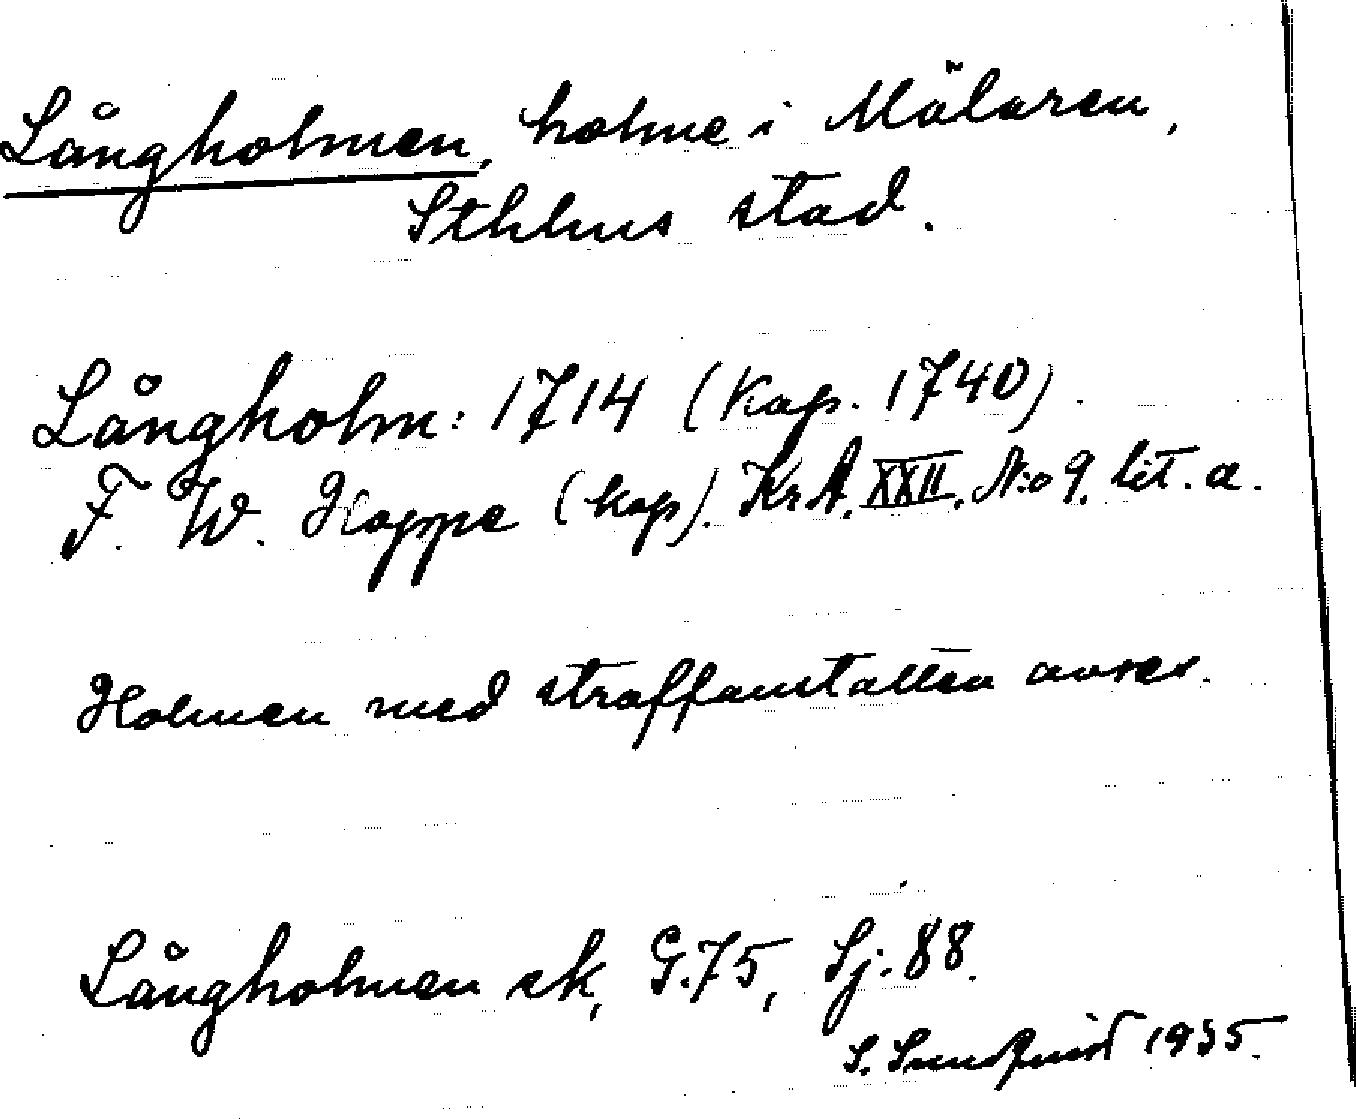 Långholmen, holme i Mälaren,
Sthlms stad.
Långholm: 1714 (Kop. 1740)
F. W. Hoppe (kop). Kr.A. XXII. N:o 9. lit. a.
Holmen med straffanstalten avses.
Långholmen ek, G.75, Sj. 88.
S. Sundquist 1935.